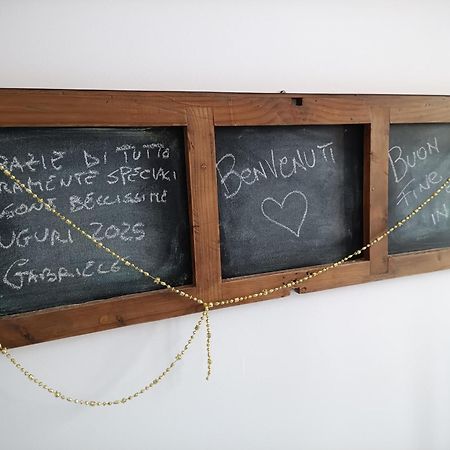 RAZIE DI TUTTO
RAMENTE SPECIALI
SONO BELLISSIME
UGURI 2025
GABRIELE
BENVENUTI
BUON
FINE
IN